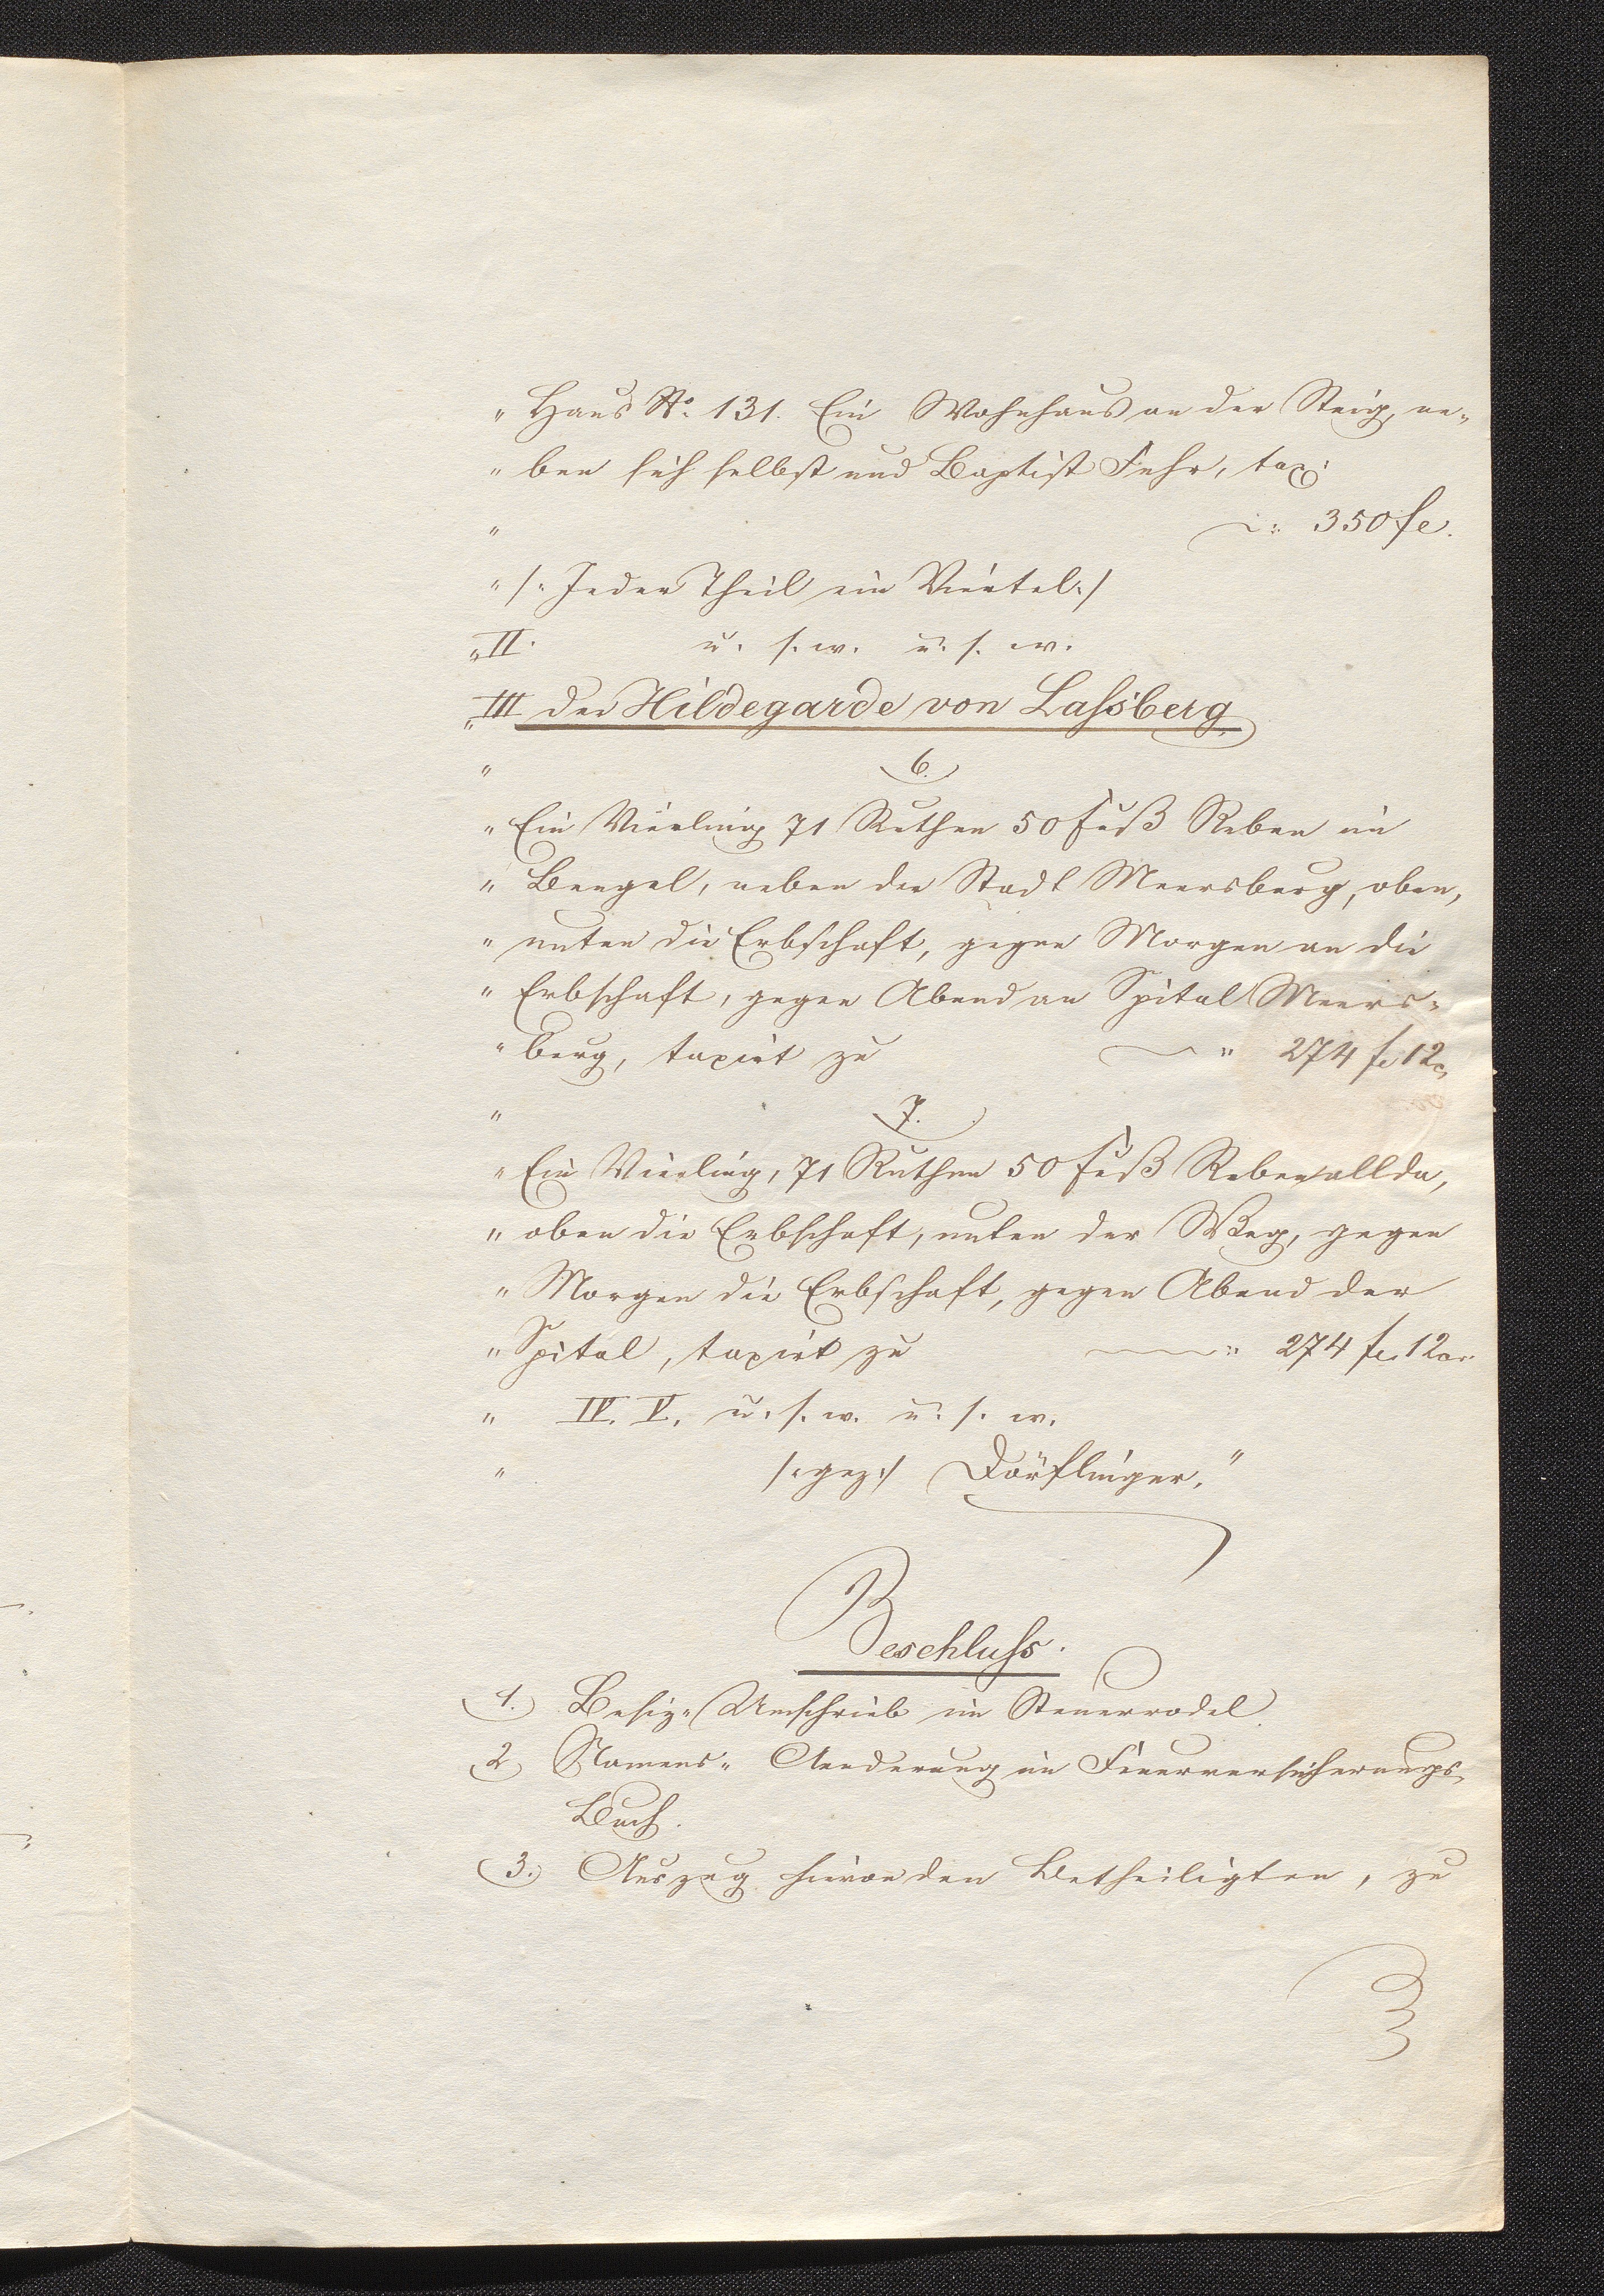 „ Haus No. 131. Ein Wohnhaus an der Steig, ne-
„ ben sich selbst und Baptist Fehr, tax:
„ ~: 350 fl.
„ /: Jeder Theil ein Viertel :/
„ II. u. s. w. u. s. w.
„ III der Hildegarde von Laßberg
„ 6.
„ Ein Vierling 71 Ruthen 50 Fuß Reben im
„ Bengel, neben der Stadt Meersburg, oben,
„ unten die Erbschaft, gegen Morgen an die
„ Erbschaft, gegen Abend an Spital Meers-
„ burg, taxirt zu ~ " 274 fl. 12
„ 7.
„ Ein Vierling, 71 Ruthen 50 Fuß Reben allda,
„ oben die Erbschaft, unten der Weg, gegen
„ Morgen die Erbschaft, gegen Abend der
„ Spital, taxirt zu ~ " 274 fl. 12
„ IV. V. u. s. w. u. s. w.
„ /: gez :/ Dörflinger."
Beschluss.
1. Besiz- Umschrieb im Steuerrodel
2 Namens- Aenderung im Feuerversicherungs-
Buch.
3. Auszug hievon den Betheiligten, zu